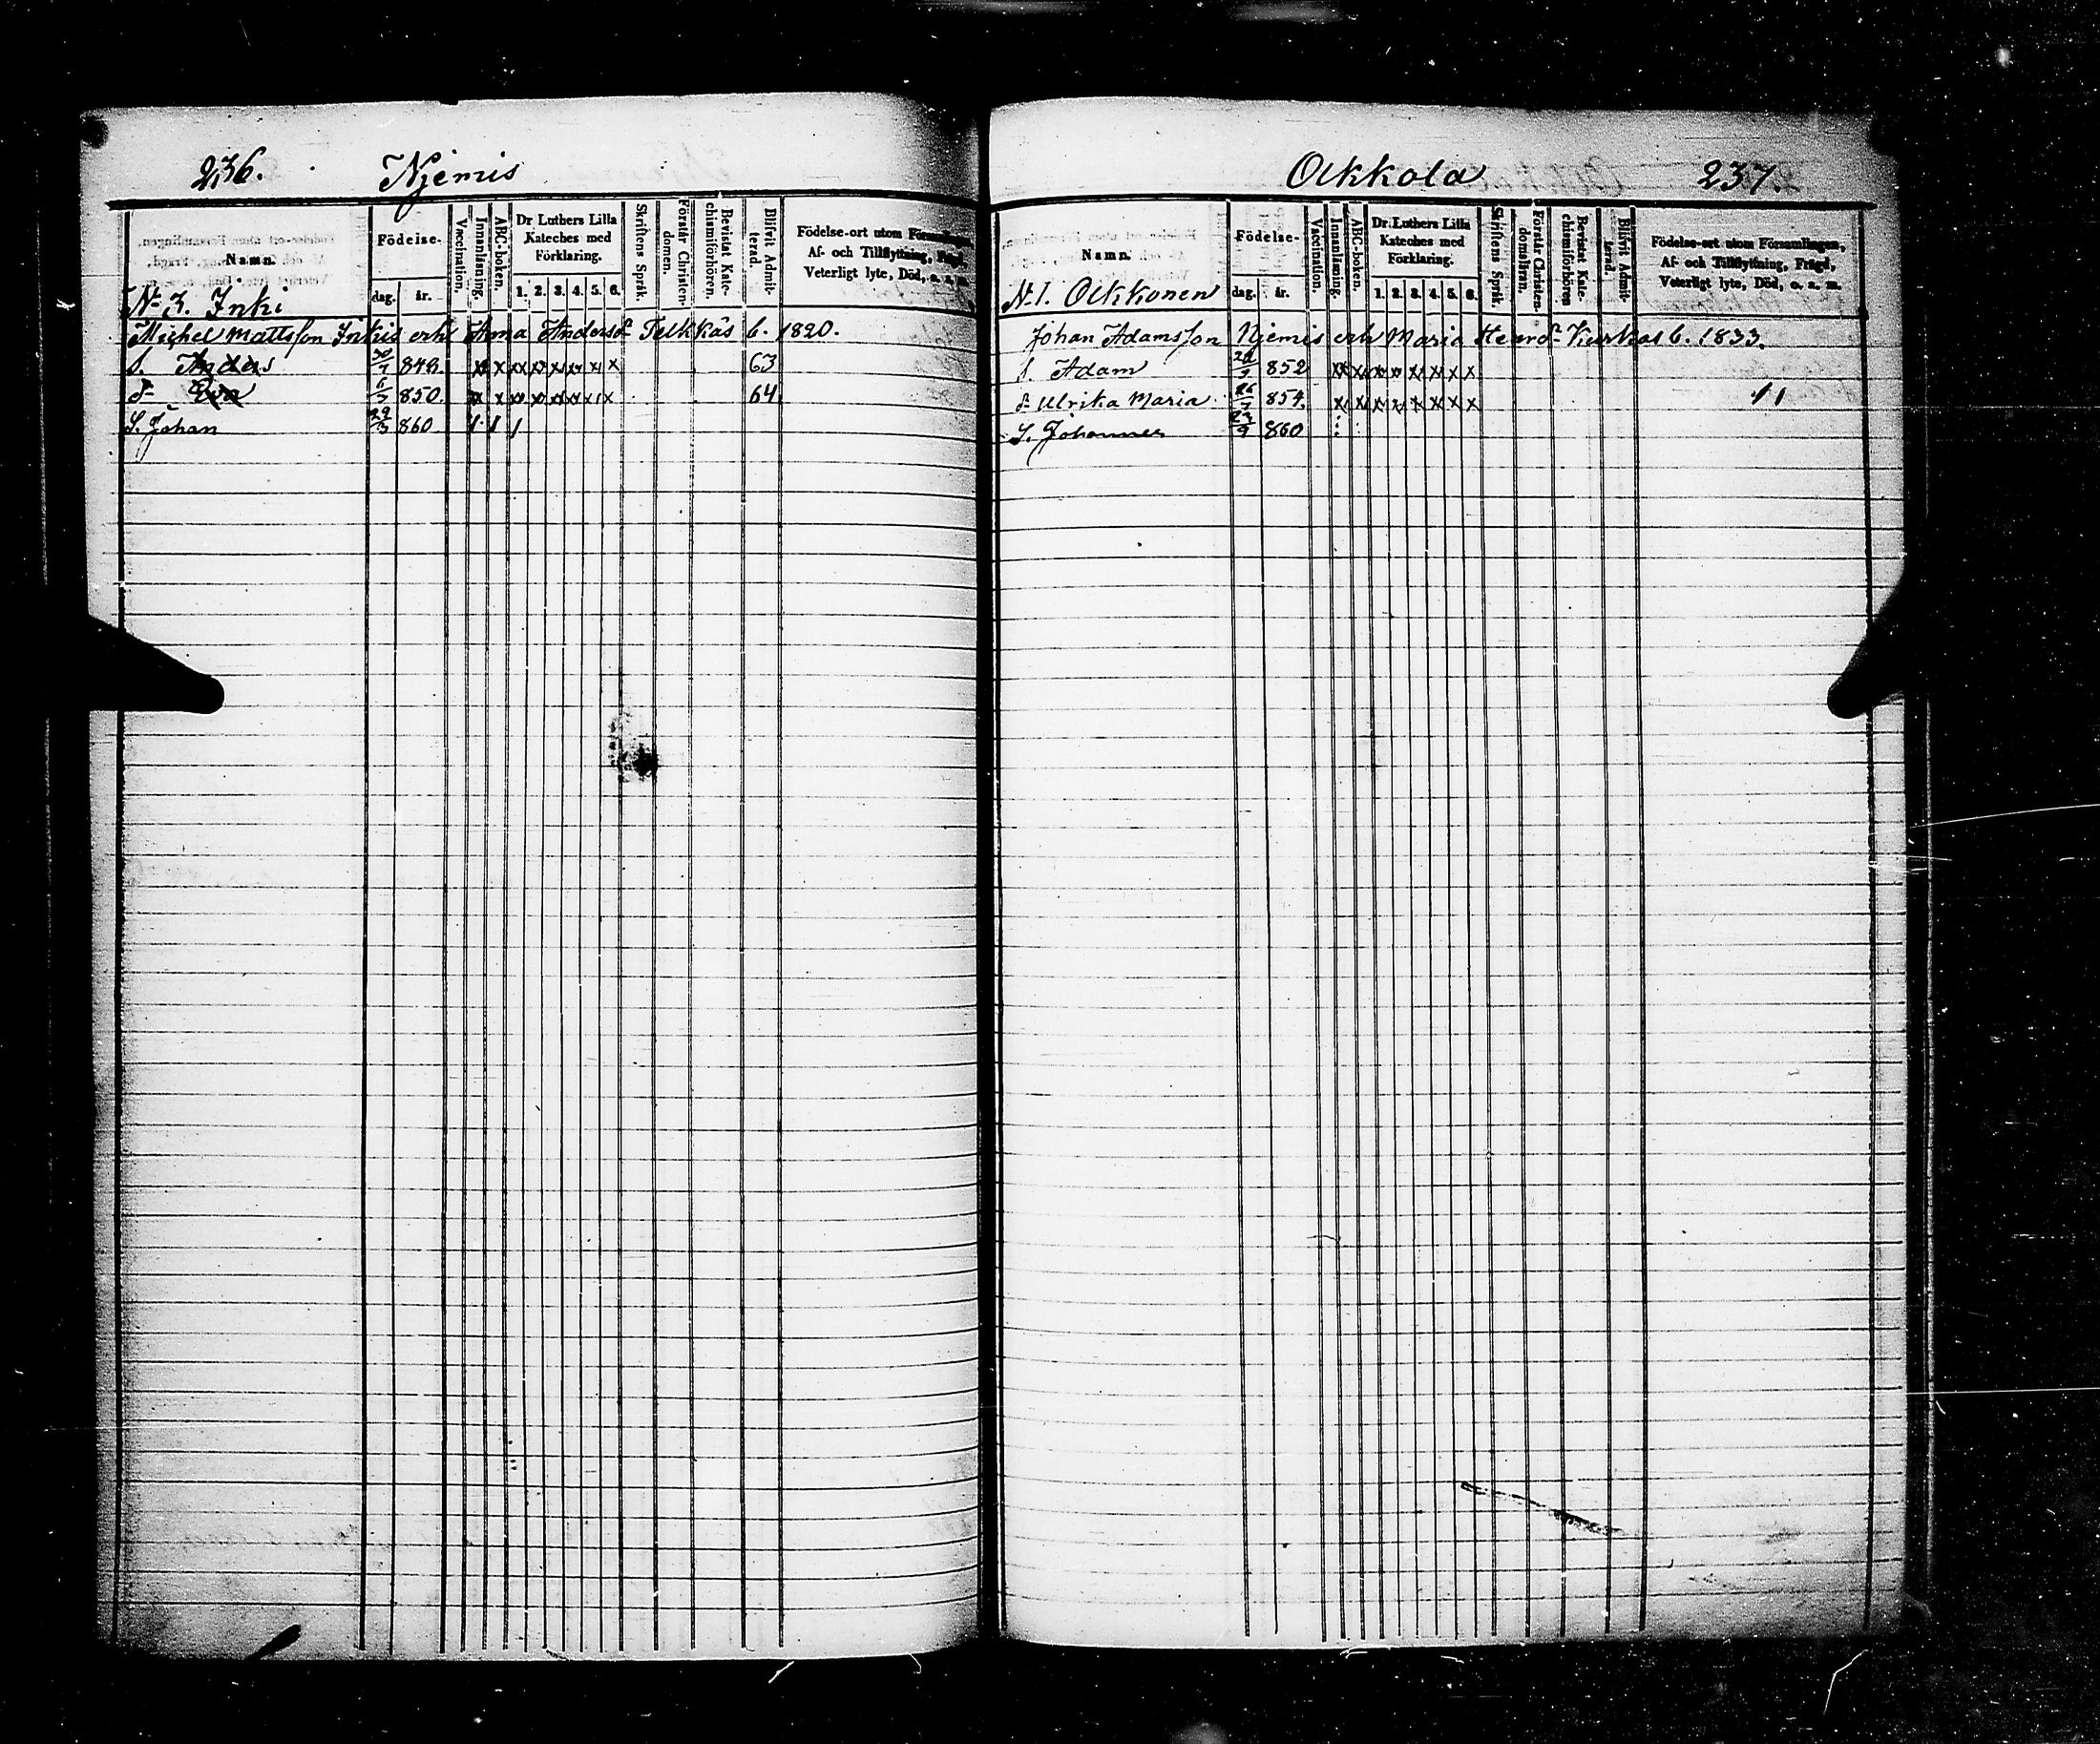 236. Njemis
Namn.
Födelse-
dag. år.
Vaccination.
Innanläsning.
ABC-boken.
Dr Luthers Lilla
Kateches med
Förklaring.
1. 2. 3. 4. 5. 6.
Skriftens Språk.
Förstår Christen-
domen.
Bevistat Kate-
chismiförhören.
Blifvit Admit-
terad.
Födelse-ort utom Församlingen,
Af- och Tillflyttning, Frägd,
Veterligt lyte, Död, o. s. m.
No 3. Inki
Michel Mattsson Inkis enk Anna Andersd Telkkäs b. 1820.
S. Anders 30/7 849. x x x x x x x x 63
d. Eva 6/5 850. x x x x x x x x 64
S. Johan 29/3 860
Olkkola 237
Namn.
Födelse-
dag. år.
Vaccination.
Innanläsning.
ABC-boken.
Dr Luthers Lilla
Kateches med
Förklaring.
1. 2. 3. 4. 5. 6.
Skriftens Språk.
Förstår Christen-
domsläran.
Bevistat Kate-
chismiförhören
Blifvit Admit-
terad.
Födelse-ort utom Församlingen,
Af- och Tillflyttning, Frägd,
Veterligt lyte, Död, o. s. m.
N. 1. Olkkonen
Johan Adamsson Njemis enk Maria Henrd Kurkas b. 1833.
S. Adam 852 x x x x x x x x
d. Ulrika Maria 26/7 854. x x x x x x x x 11
S. Johannes 860